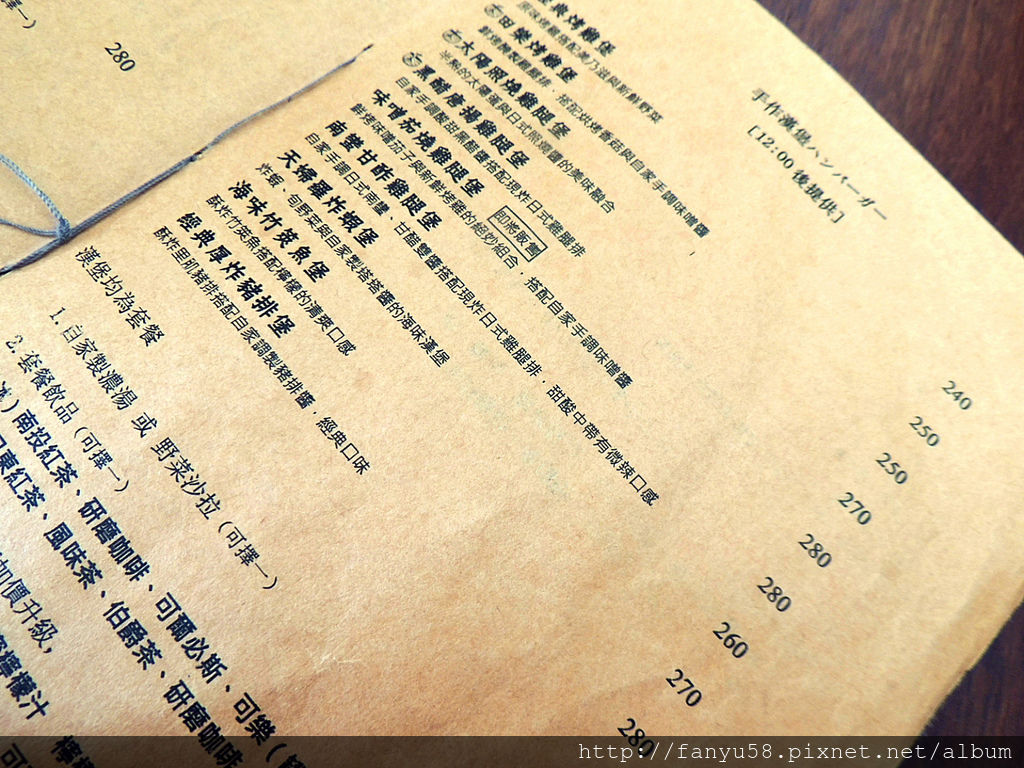 手作漢堡ハンバーガー
[12:00 後提供]
經典烤雞堡 240
原味烤雞搭配美乃滋與新鮮野菜
田樂烤雞堡 250
鮮烤醃製雞腿排，搭配烘烤香菇與自家手調味噌醬
太陽照燒雞腿堡 250
半熟的太陽蛋與日式照燒醬的美味融合
黑醋唐揚雞腿堡 270
自家手調酸甜黑醋醬搭配現炸日式雞腿排
味噌茄燒雞腿堡 即將販售 280
鮮烤味噌茄子與新鮮烤雞的絕妙組合，搭配自家手調味噌醬
南蠻甘酢雞腿堡 280
自家手調日式南蠻、甘醋雙醬搭配現炸日式雞腿排，甜酸中帶有微辣口感
天婦羅炸蝦堡 260
炸蝦、旬野菜與自家製塔塔醬的海味漢堡
海味竹筴魚堡 270
酥炸竹筴魚搭配檸檬的清爽口感
經典厚炸豬排堡 280
酥炸里肌豬排搭配自家調製豬排醬，經典口味
漢堡均為套餐
1. 自家製濃湯 或 野菜沙拉（可擇一）
2. 套餐飲品（可擇一）
冰）南投紅茶、研磨咖啡、可爾必斯、可樂（
紅茶、風味茶、伯爵茶、研磨咖啡
加價升級，
檸檬汁
280
擇一）
http://fanyu58.pixnet.net/album